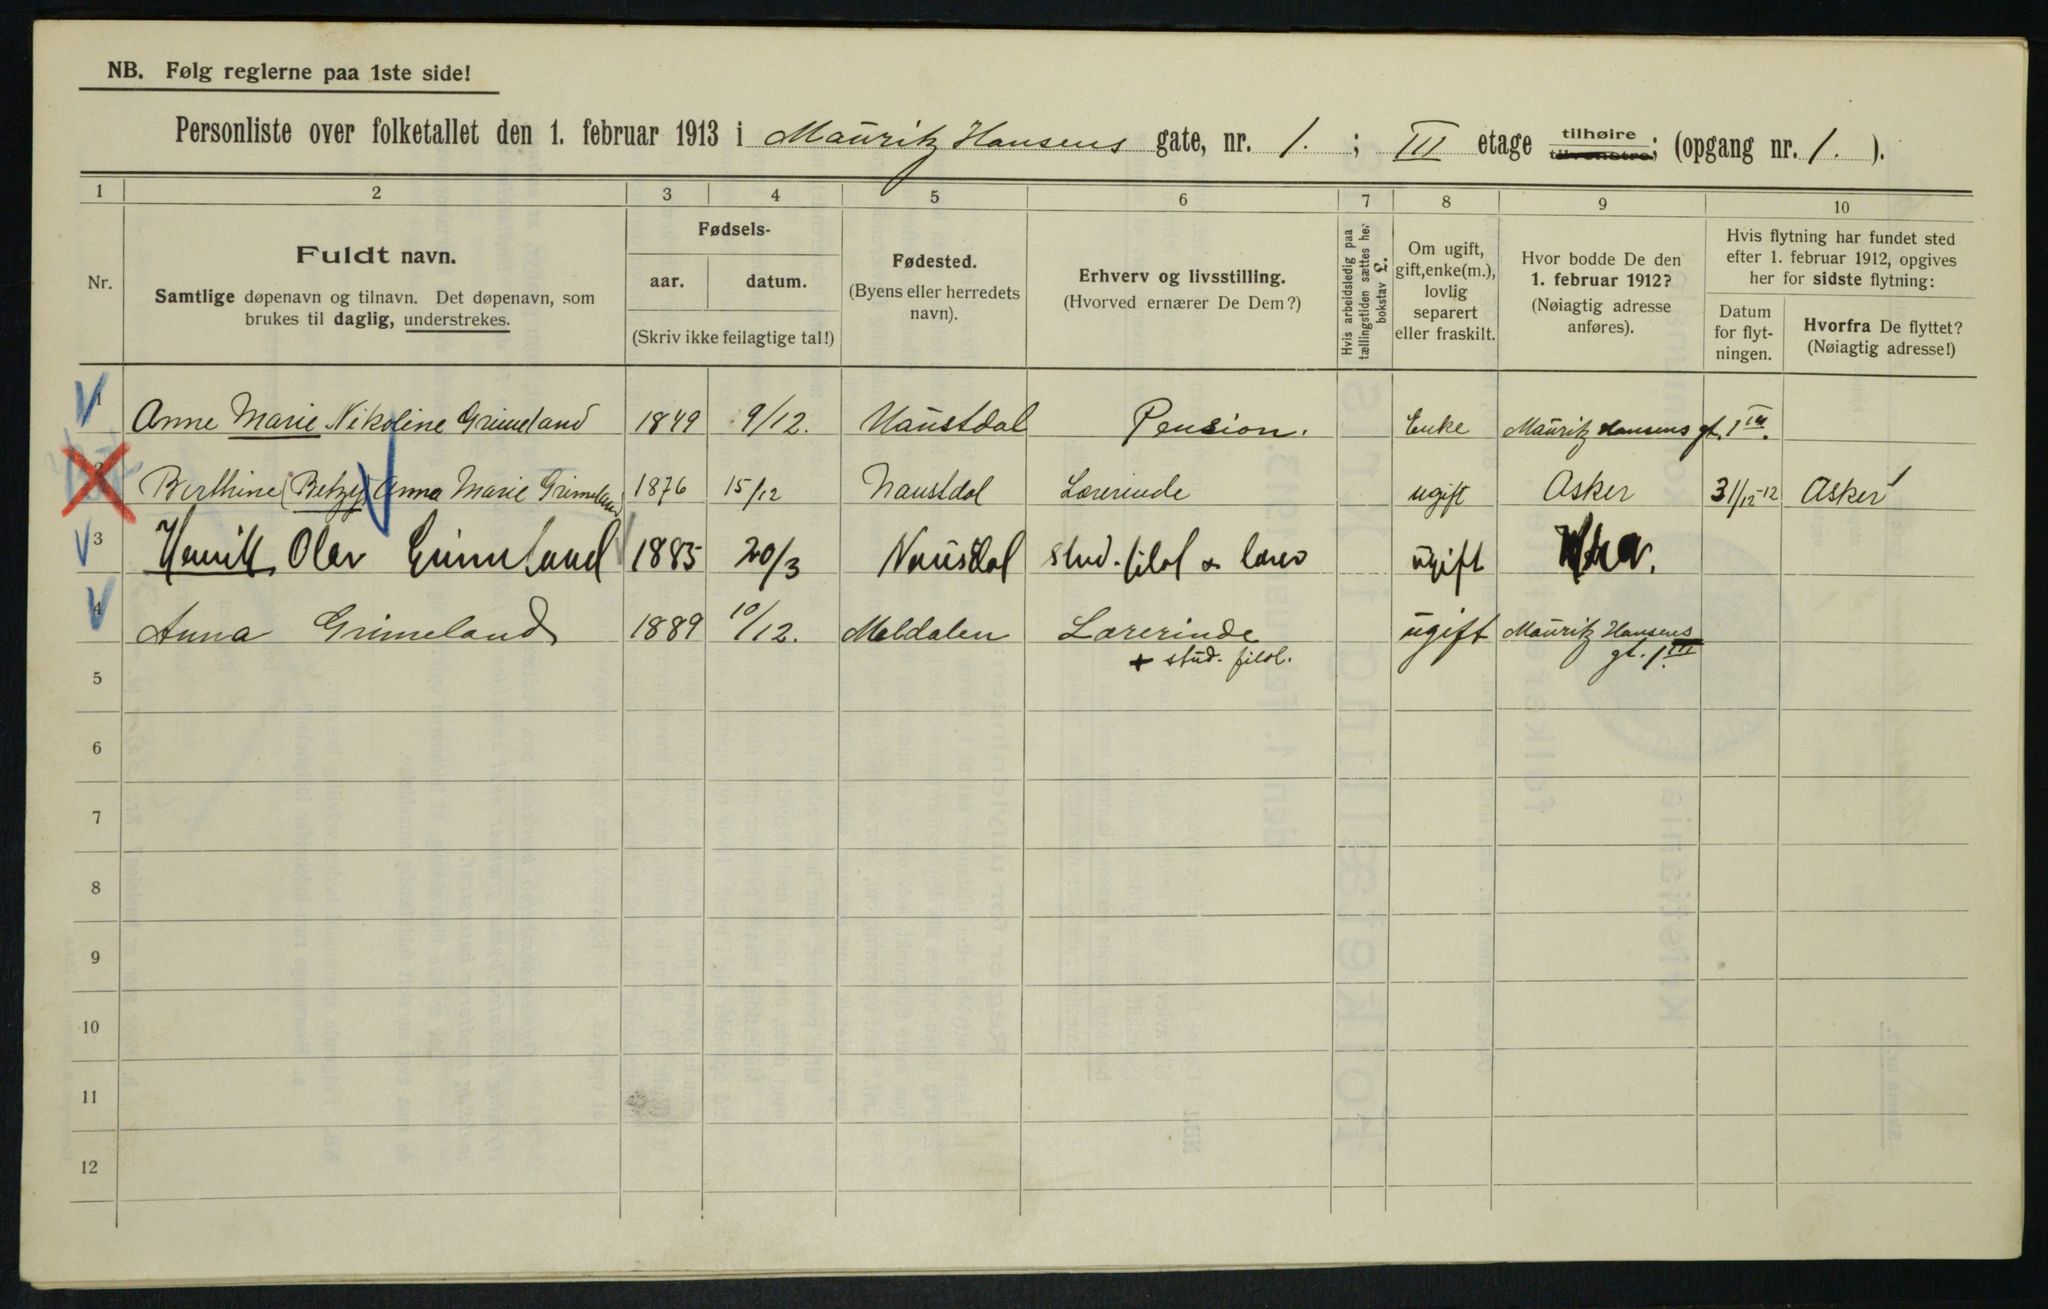 NB. Følg reglerne paa 1ste side!
Personliste over folketallet den 1. februar 1913 i Mauritz Hansens gate, nr. 1. ; III etage tilhøire tilvenstre; (opgang nr. 1. ).
1 2 3 4 5 6 7 8 9 10
Nr.
Fuldt navn.
Samtlige døpenavn og tilnavn. Det døpenavn, som
brukes til daglig, understrekes.
Fødsels-
aar. datum.
(Skriv ikke feilagtige tal!)
Fødested.
(Byens eller herredets
navn).
Erhverv og livsstilling.
(Hvorved ernærer De Dem?)
Hvis arbeidsledig paa
tællingstiden sættes her
bokstav £.
Om ugift,
gift, enke(m.),
lovlig
separert
eller fraskilt.
Hvor bodde De den
1. februar 1912?
(Nøiagtig adresse
anføres).
Hvis flytning har fundet sted
efter 1. februar 1912, opgives
her for sidste flytning:
Datum
for flyt-
ningen.
Hvorfra De flyttet?
(Nøiagtig adresse!)
1 Anne Marie Nikoline Grimeland 1849 9/12. Naustdal Pension. Enke Mauritz Hansens gt. 1 III.
2 Berthine (Betzy) Anna Marie Grimeland 1876 15/12 Naustdal Lærerinde ugift Asker 31/12-12 Asker
3 Henrik Olav Grimeland 1885 20/3 Nausdal stud. filol & lærer ugift Kra.
4 Anna Grimeland 1889 10/12. Meldalen Lærerinde ugift Mauritz Hansens
+ stud. filol. gt. 1 III
5
6
7
8
9
10
11
12